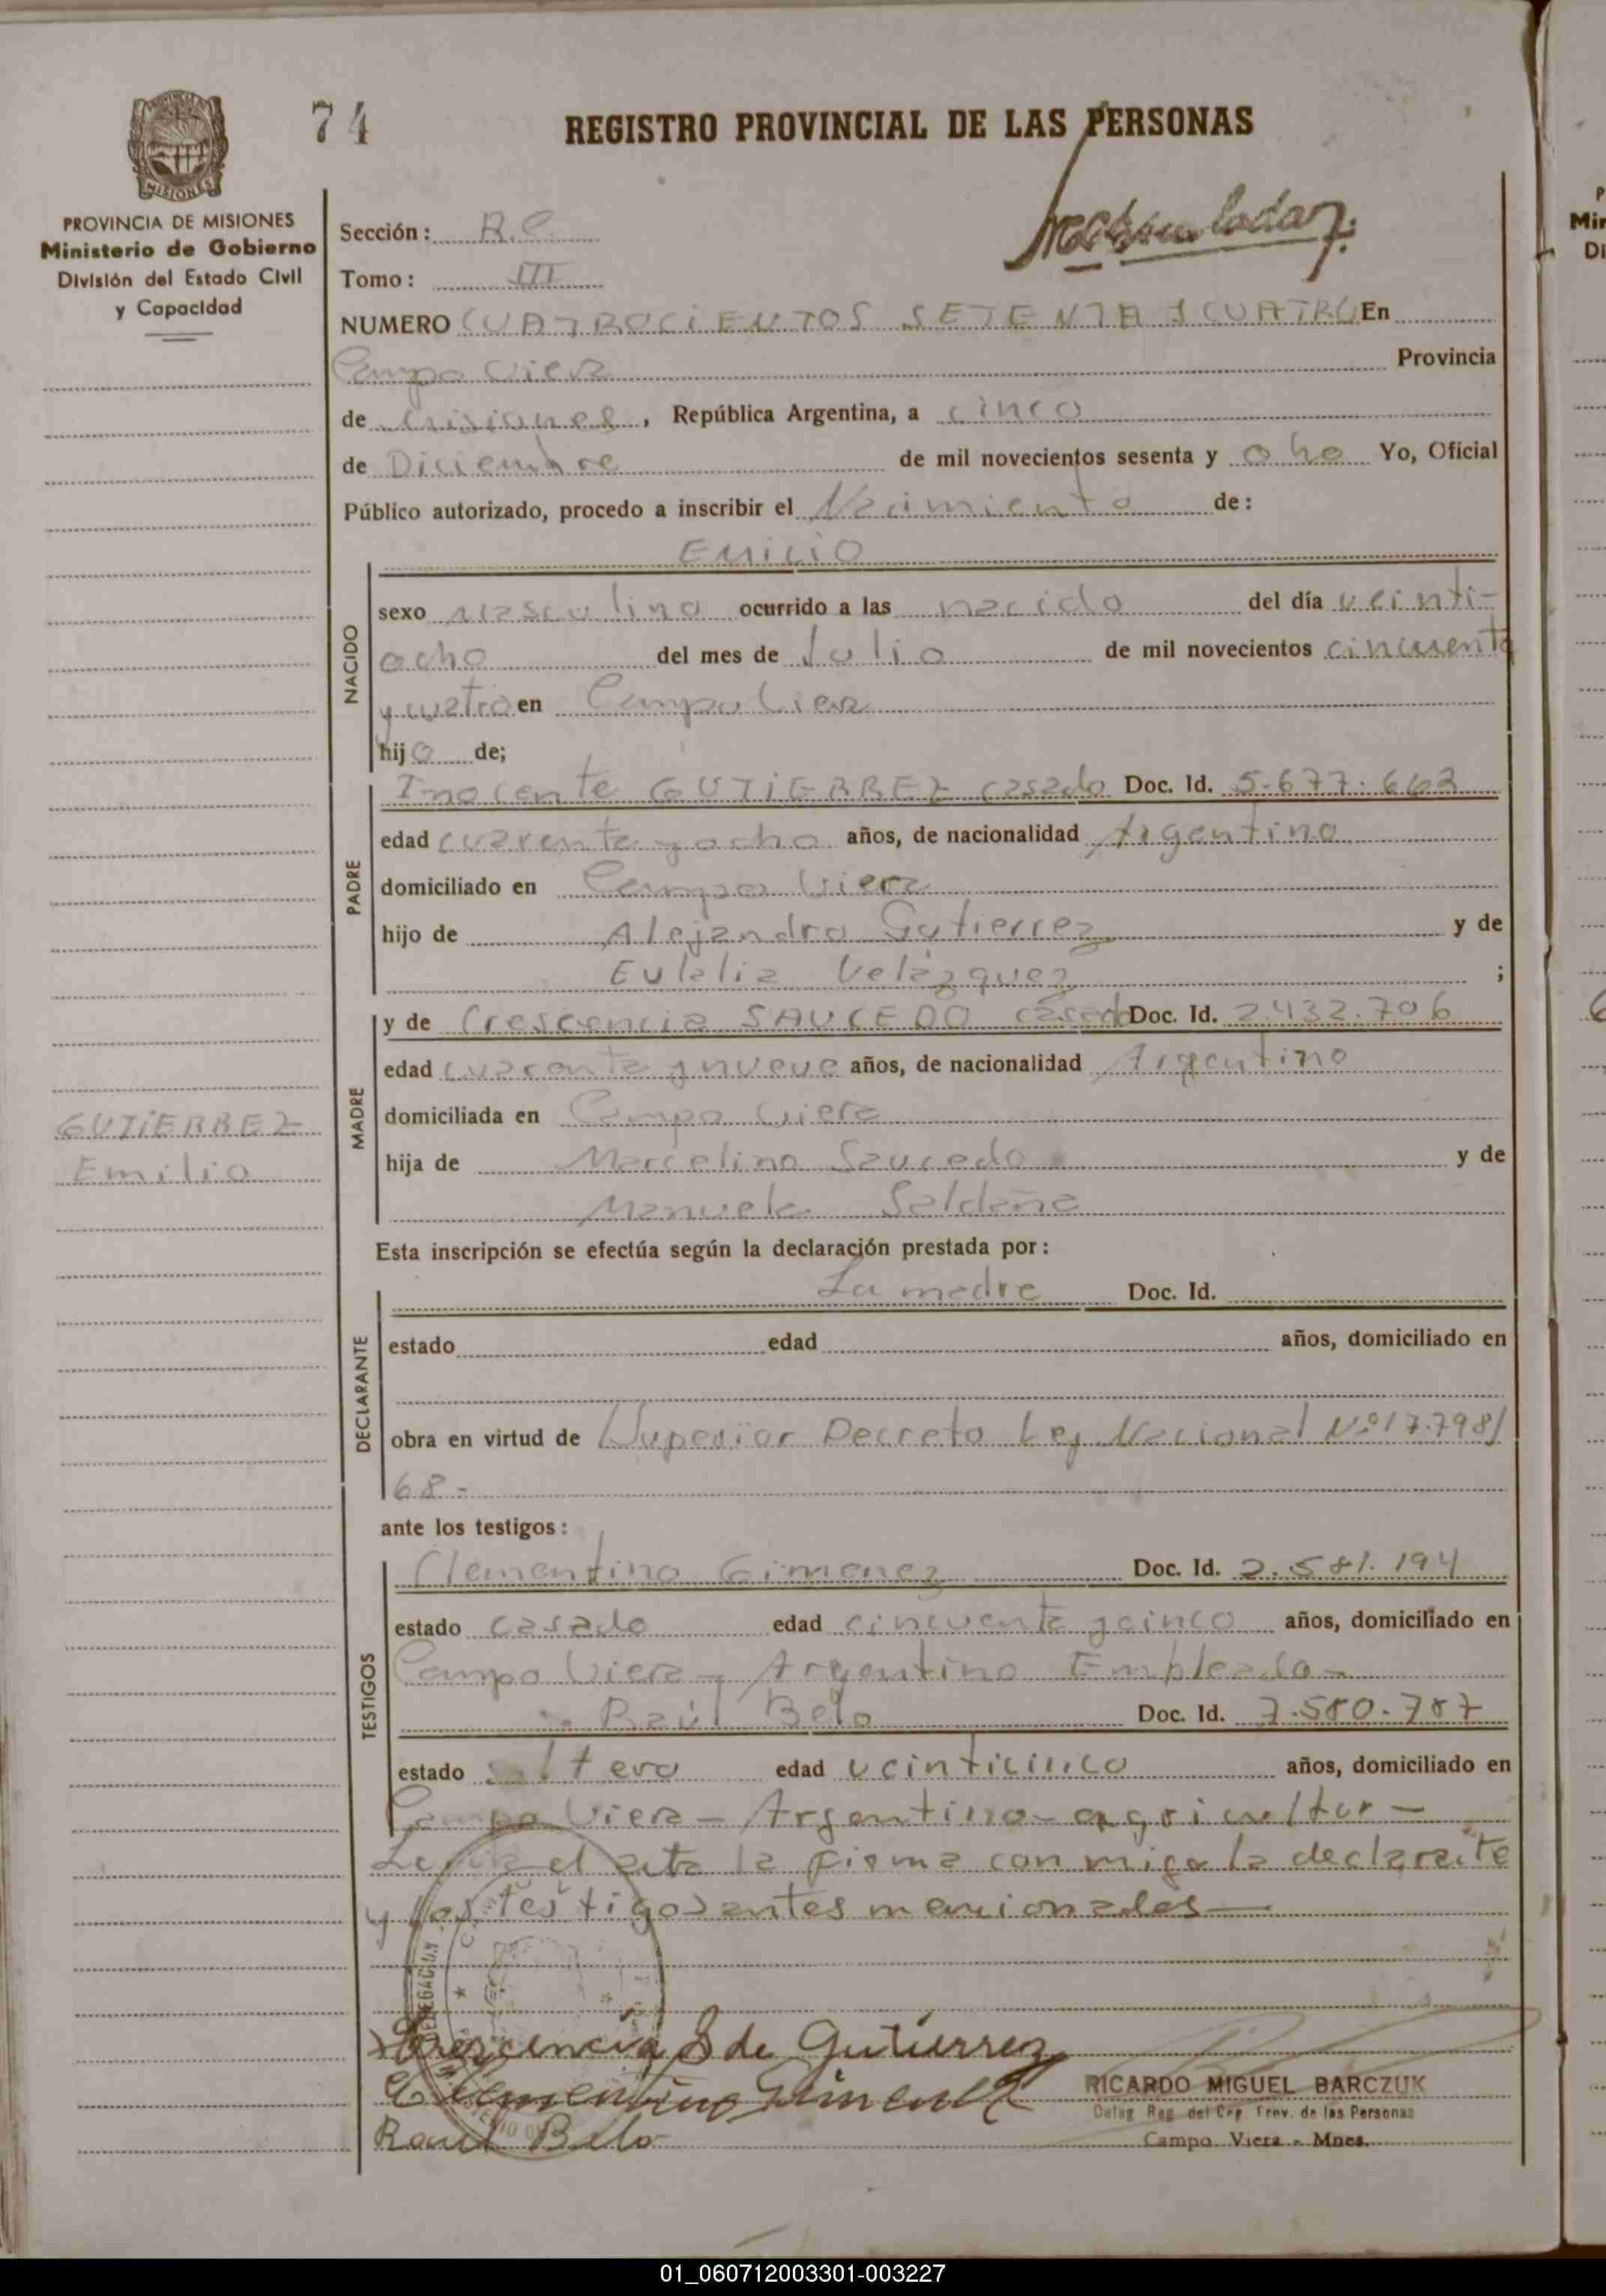 74
REGISTRO PROVINCIAL DE LAS PERSONAS
MISIONES
PROVINCIA DE MISIONES
Ministerio de Gobierno
División del Estado Civil
y Capacidad
Sección: R.C.
Tomo: III
NUMERO CUATROCIENTOS SETENTA Y CUATRO En
Campo Viera Provincia
de Misiones, República Argentina, a cinco
de Diciembre de mil novecientos sesenta y oho Yo, Oficial
Público autorizado, procedo a inscribir el Nacimiento de:
EMILIO
NACIDO
sexo masculino ocurrido a las nacido del día veinti-
ocho del mes de Julio de mil novecientos cincuenta
y cuatro en Campo Viera
hijo de;
PADRE
Inocente GUTIERREZ casado Doc. Id. 5.677.663
edad cuarenta y ocho años, de nacionalidad Argentino
domiciliado en Campo Viera
hijo de Alejandro Gutierrez y de
Eulalia Velázquez ;
MADRE
y de Crescencia SAUCEDO casada Doc. Id. 2.432.706
edad cuarenta y nueve años, de nacionalidad Argentino
domiciliada en Campo Viera
GUTIERREZ
Emilio
hija de Marcelino Saucedo y de
Manuela Saldaña
Esta inscripción se efectúa según la declaración prestada por:
DECLARANTE
La madre Doc. Id.
estado edad años, domiciliado en
obra en virtud de Superior Decreto Ley Nacional Nº 17.798/
68-
ante los testigos:
TESTIGOS
Clementino Gimenez Doc. Id. 2.581.194
estado casado edad cincuenta y cinco años, domiciliado en
Campo Viera - Argentino Empleado -
Raúl Belo Doc. Id. 7.580.787
estado soltero edad veinticinco años, domiciliado en
Campo Viera - Argentino - agricultor -
Leída el acta la firma conmigo la declarante
y los testigos antes mencionados
DELEGACION
Crescencia S de Gutierrez
Clementino Gimenez
RICARDO MIGUEL BARCZUK
Deleg. Reg. del Reg. Prov. de las Personas
Raul Belo
Campo Viera - Mnes.
01_060712003301-003227